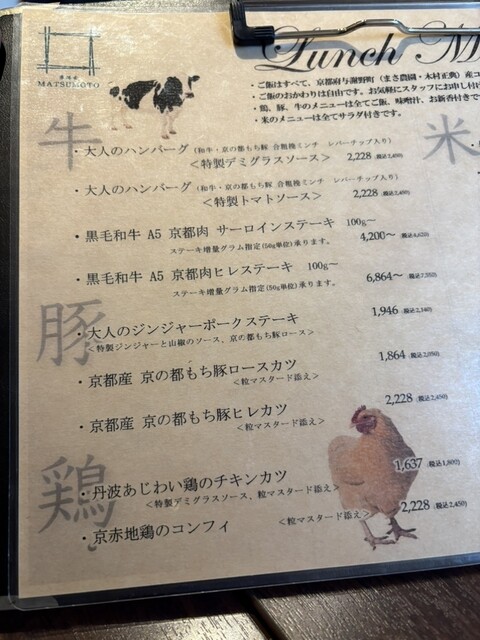 MATSUMOTO
Lunch M
・ご飯はすべて、京都府与謝野町（まさ農園・木村正典）産コ
・ご飯のおかわりは自由です。お気軽にスタッフにお申し付け
・鶏、豚、牛のメニューは全てご飯、味噌汁、お新香付きで
・米のメニューは全てサラダ付きです。
牛
米
・大人のハンバーグ（和牛・京の都もち豚 合粗挽ミンチ レバーチップ入り）
＜特製デミグラスソース＞ 2,228（税込2,450）
・大人のハンバーグ（和牛・京の都もち豚 合粗挽ミンチ レバーチップ入り）
＜特製トマトソース＞ 2,228（税込2,450）
・黒毛和牛 A5 京都肉 サーロインステーキ 100g～
ステーキ増量グラム指定(50g単位)承ります。 4,200～（税込4,620）
・黒毛和牛 A5 京都肉ヒレステーキ 100g～
ステーキ増量グラム指定(50g単位)承ります。 6,864～（税込7,550）
豚
・大人のジンジャーポークステーキ 1,946（税込2,140）
＜特製ジンジャーと山椒のソース、京の都もち豚ロース＞
・京都産 京の都もち豚ロースカツ 1,864（税込2,050）
＜粒マスタード添え＞
・京都産 京の都もち豚ヒレカツ 2,228（税込2,450）
＜粒マスタード添え＞
鶏
・丹波あじわい鶏のチキンカツ 1,637（税込1,800）
＜特製デミグラスソース、粒マスタード添え＞
・京赤地鶏のコンフィ ＜粒マスタード添え＞ 2,228（税込2,450）